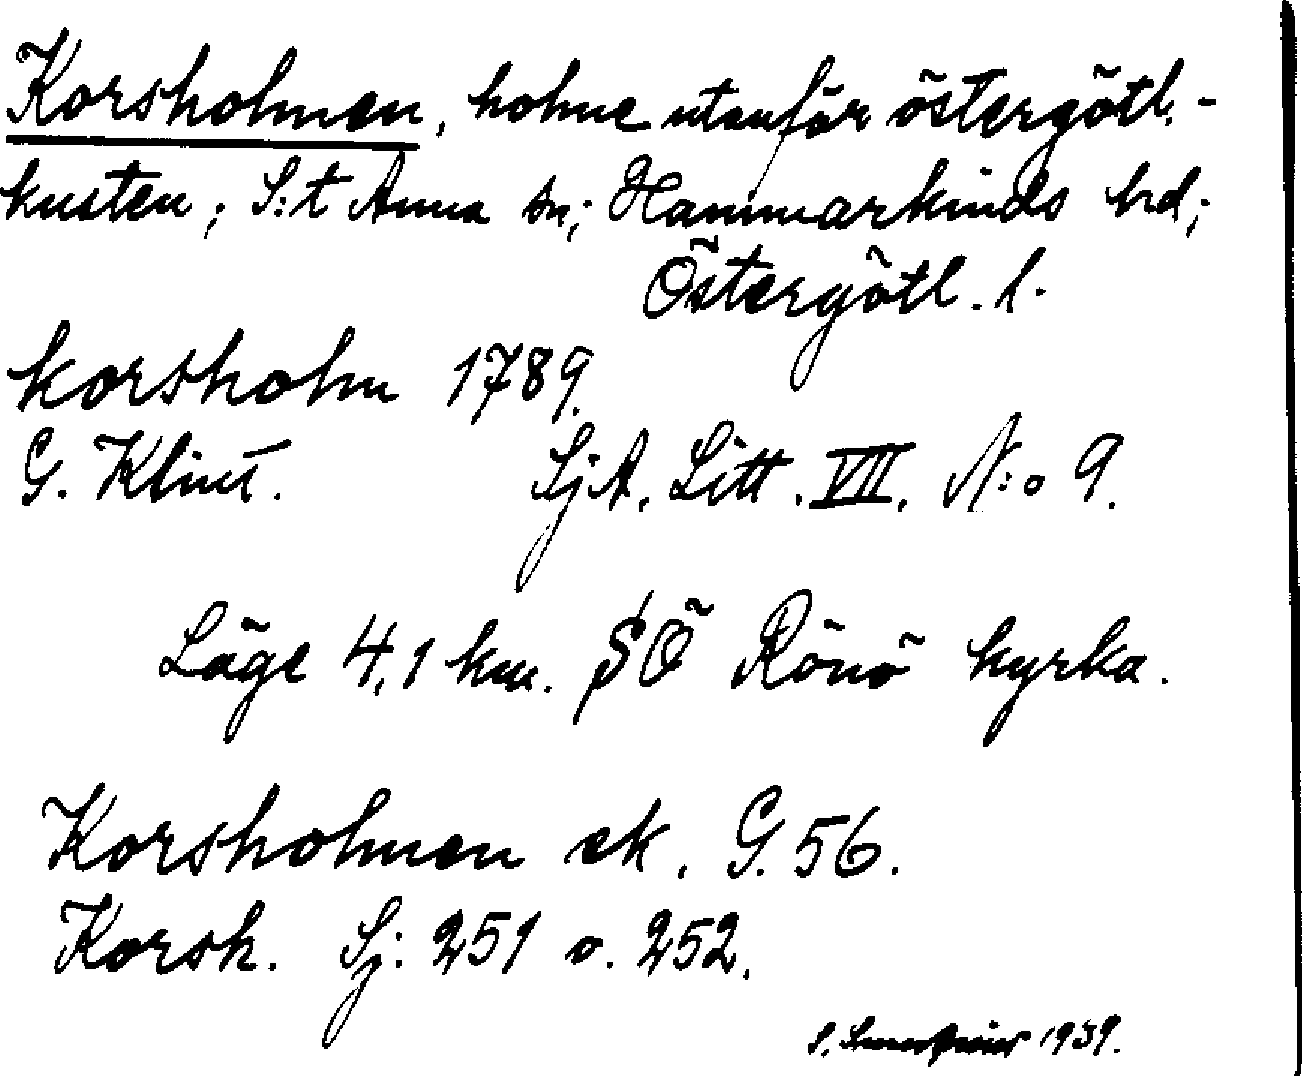 Korsholmen, holme utanför östergötl.-
kusten; S:t Anna sn; Hammarkinds hd;
Östergötl. l.
korsholm 1789.
G. Klint. SjA. Litt. VII. N:o 9.
Läge 4,1 km. SÖ Rönö kyrka.
Korsholmen ek. G. 56.
Korsh. Sj. 251 o. 252.
S. 1939.